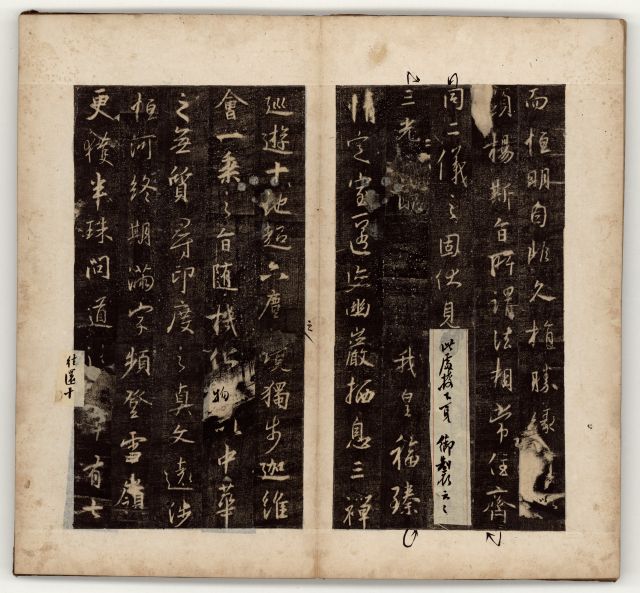 而恒明自非久植勝緣以
顯揚斯旨所謂法相常住齊
同二儀之固伏見
此處接七頁 御製云云
三光 明 我皇福臻
情定室匿迹幽巖栖息三禪
之
巡遊十地超六塵境獨步迦維
會一乘之旨随機化物以中華
之無質尋印度之真文遠涉
恒河終期滿字頻登雪嶺
更獲半珠問道 有七
往還十